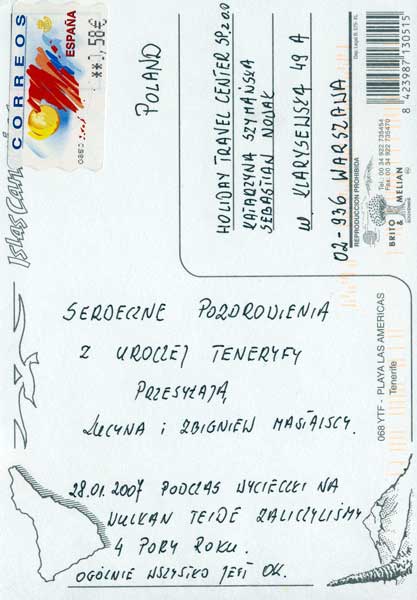 CORREOS
ESPAÑA
**0,58€
Islas Can
POLAND
HOLIDAY TRAVEL CENTER SP. z o.o
KATARZYNA SZYMAŃSKA
SEBASTIAN NOWAK
ul. KLARYSEWSKA 49 A
02-936 WARSZAWA
8 423987 130515
Tel.: 00 34 922 735454
Fax.: 00 34 922 735470
REPRODUCCION PROHIBIDA
BRITO & MELIAN
068 YTF - PLAYA LAS AMERICAS
Tenerife
SERDECZNE POZDROWIENIA
Z UROCZEJ TENERYFY
PRZESYŁAJĄ
LUCYNA i ZBIGNIEW MASTAJSCY.
28.01.2007 PODCZAS WYCIECZKI NA
WULKAN TEIDE ZALICZYLIŚMY
4 PORY ROKU.
OGÓLNIE WSZYSTKO JEST OK.